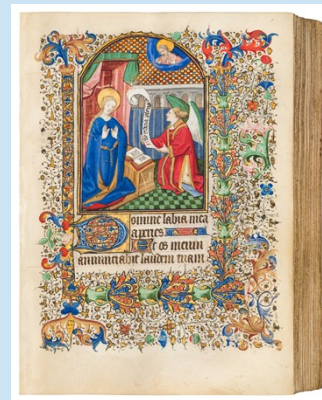 Domine labia mea
aperies
Et os meum
annunciabit laudem tuam